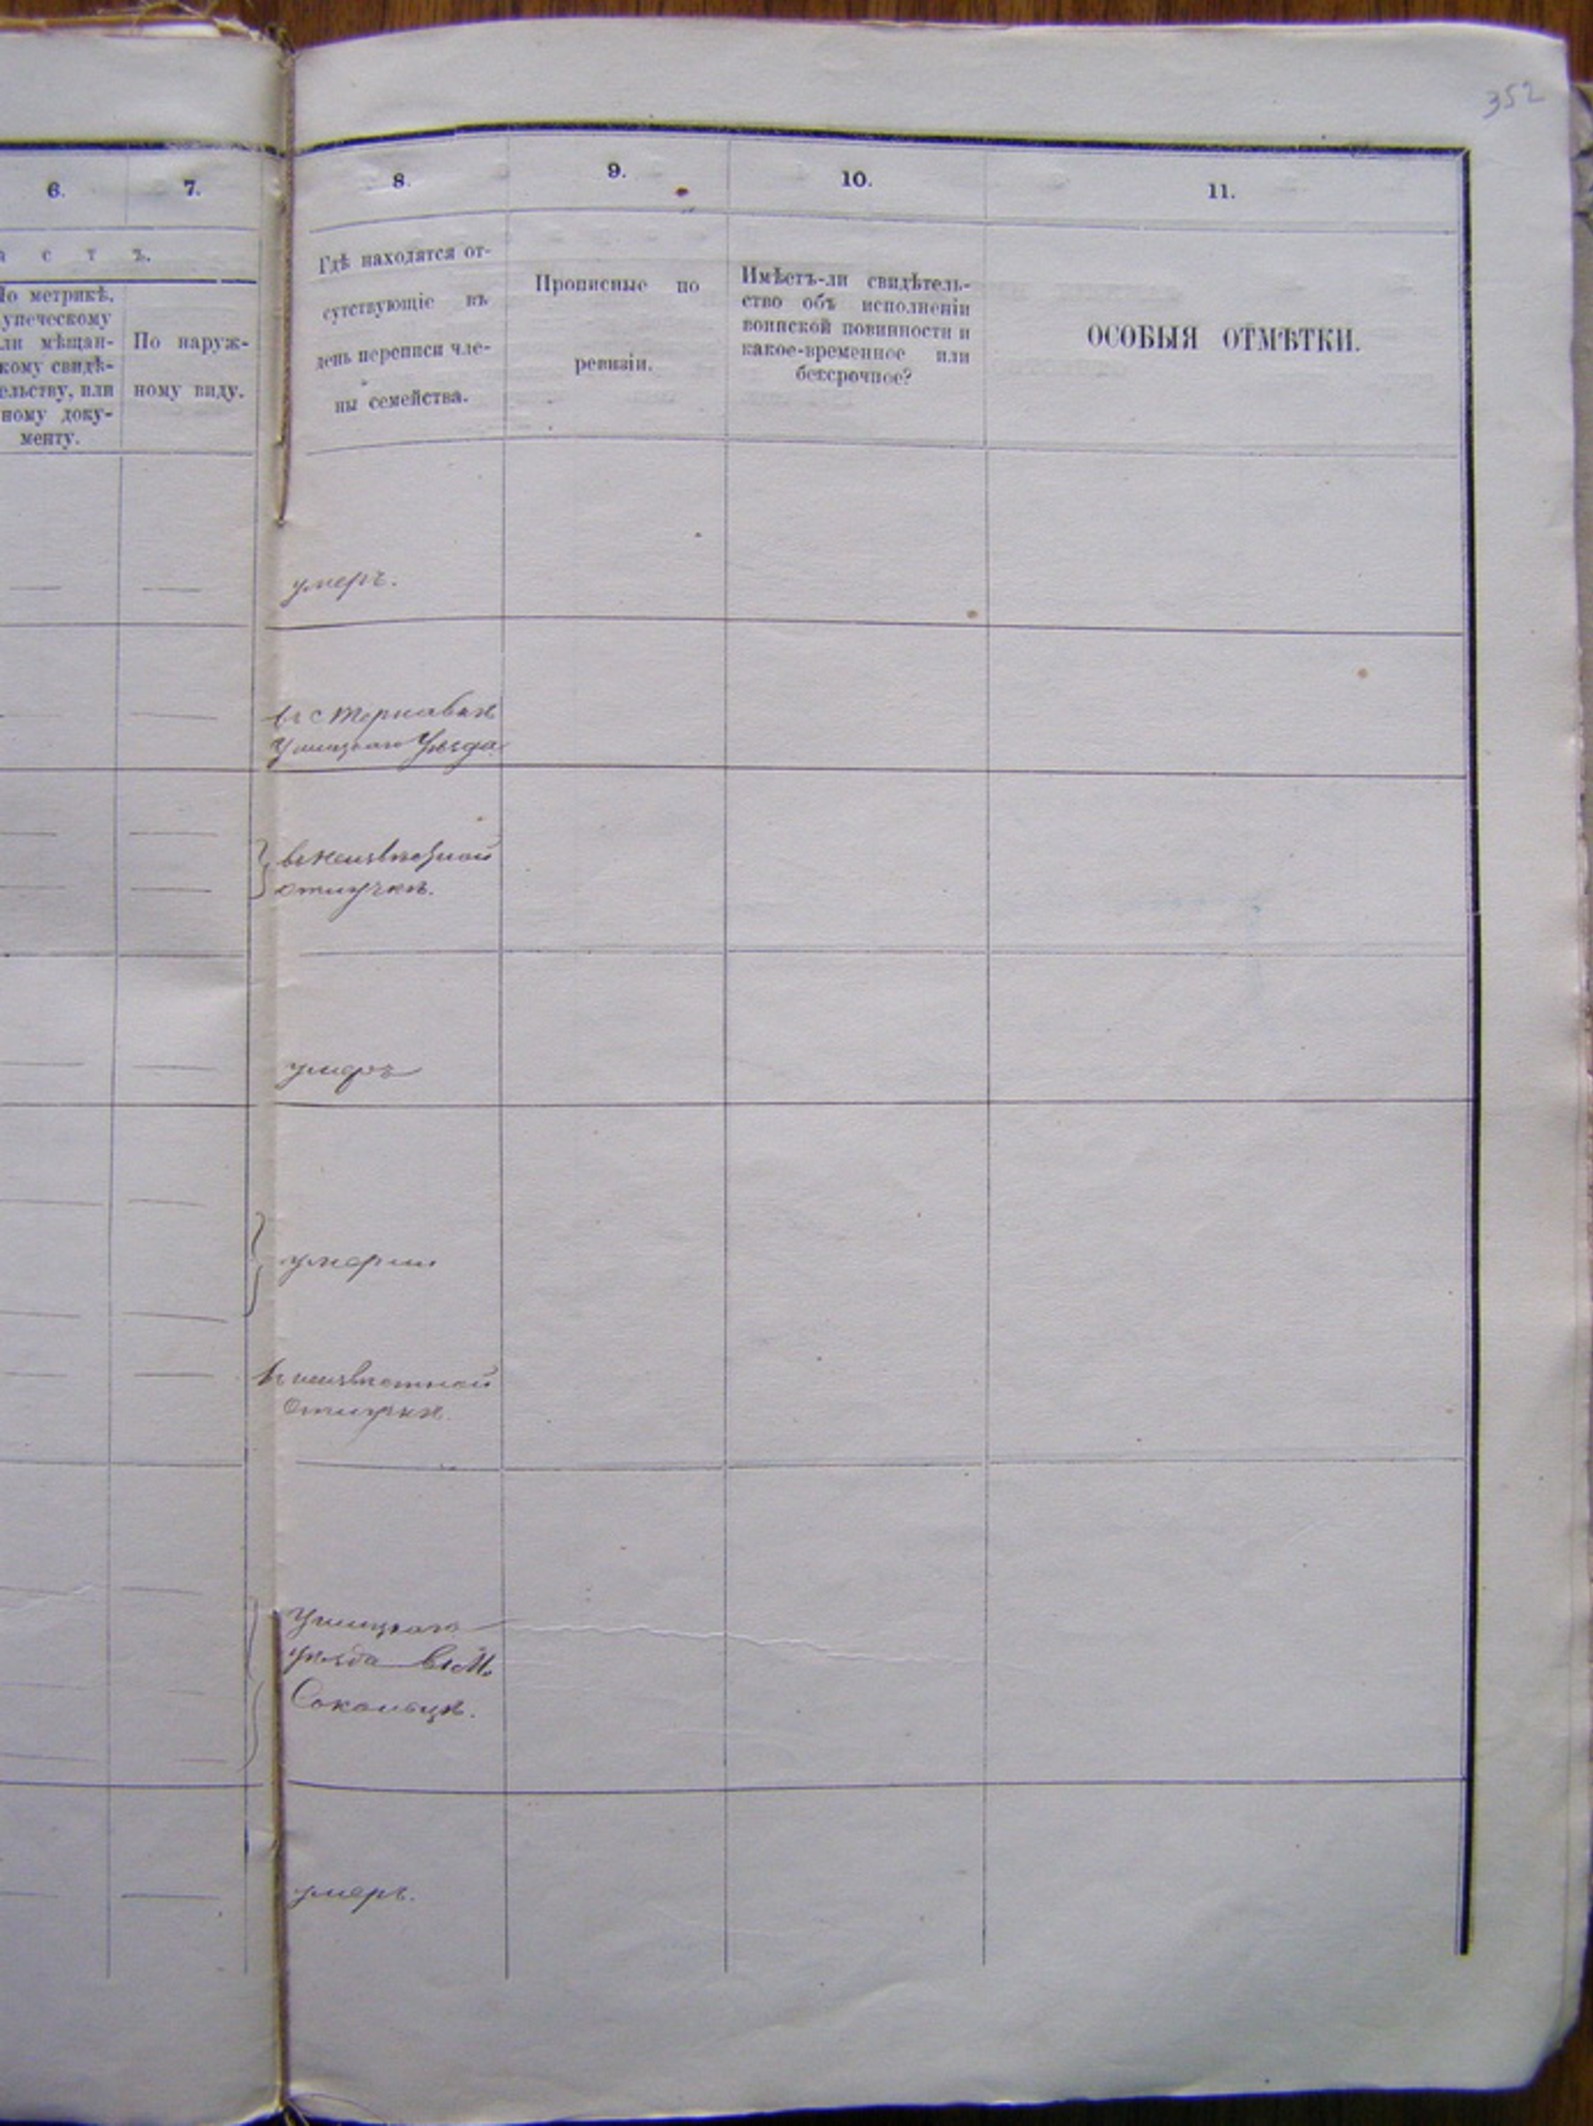 352
6. 7. 8. 9. 10. 11.
а с т ъ.
По метрикѣ,
купеческому
или мѣщан-
скому свидѣ-
тельству, или
иному доку-
менту.
По наруж-
ному виду.
Гдѣ находятся от-
сутствующіе въ
день переписи чле-
ны семейства.
Прописные по
ревизіи.
Имѣетъ-ли свидѣтель-
ство объ исполненіи
воинской повинности и
какое-временное или
безсрочное?
ОСОБЫЯ ОТМѢТКИ.
умеръ.
въ с Терновкѣ
Ушицкаго Уѣзда
въ неизвѣстной
отлучкѣ.
умеръ
умерли
въ неизвѣстной
Отлучкѣ.
Ушицкаго
уѣзда въ М.
Сокольцѣ.
умеръ.